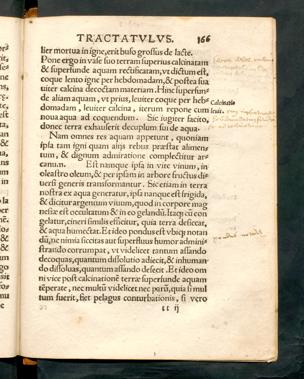 TRACTATVLVS. 166
lier mortua in igne, erit bufo grossus de lacte.
Pone ergo in vase suo terram superius calcinatam
& superfunde aquam rectificatam, vt dictum est,
coque lento igne per hebdomadam, & postea sua
uiter calcina decoctam materiam. Hinc superfun-
de aliam aquam, vt prius, leuiter coque per heb-
domadam, leuiter calcina, iterum repone cum
noua aqua ad coquendum. Sic iugiter facito,
donec terra exhauserit decuplum sui de aqua.
Calcinatio
Nam omnes res aquam appetunt, quoniam
ipsa tam igni quam alijs rebus præstat alimen-
tum, & dignum admiratione complectitur ar-
canum. Est namque ipsa in vite vinum, in
oleastro oleum, & per ipsam in arbore fructus di-
uersi generis transformantur. Sic etiam in terra
nostra ex aqua generatur, ipsa nanque est frigida,
& dicitur argentum viuum, quod in corpore mag
nesiæ est occultatum &
gelatur, eius simili efficitur, quia terra desiccat,
& aqua humectat. Et ideo pondus est vbique notan
dũ, ne nimia siccitas aut superfluus humor adminis
strando corrumpat, vt videlicet tantum assando
decoquas, quantum dissolutio adiecit, & inhuman-
do dissoluas, quantum assando defecit. Et ideo om
ni vice post calcinationem terræ superfunde aquam
tẽperate, nec multũ videlicet nec parũ, quia si mul
tum fuerit, fiet pelagus conturbationis, si vero